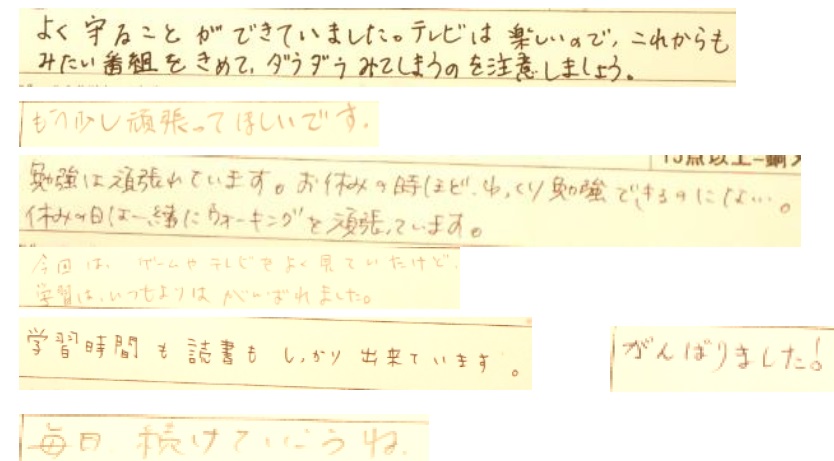 よく守ることができていました。テレビは楽しいので、これからも
みたい番組をきめて、ダラダラみてしまうのを注意しましょう。
もう少し頑張ってほしいです。
15点以上-銅メ
勉強は頑張れています。お休みの時ほど、ゆっくり勉強できるのにな…。
休みの日は一緒にウォーキングを頑張っています。
今回は、ゲームやテレビをよく見ていたけど、
学習は、いつもよりは がんばれました。
学習時間も読書もしっかり出来ています。
がんばりました!
毎日 続けていこうね。